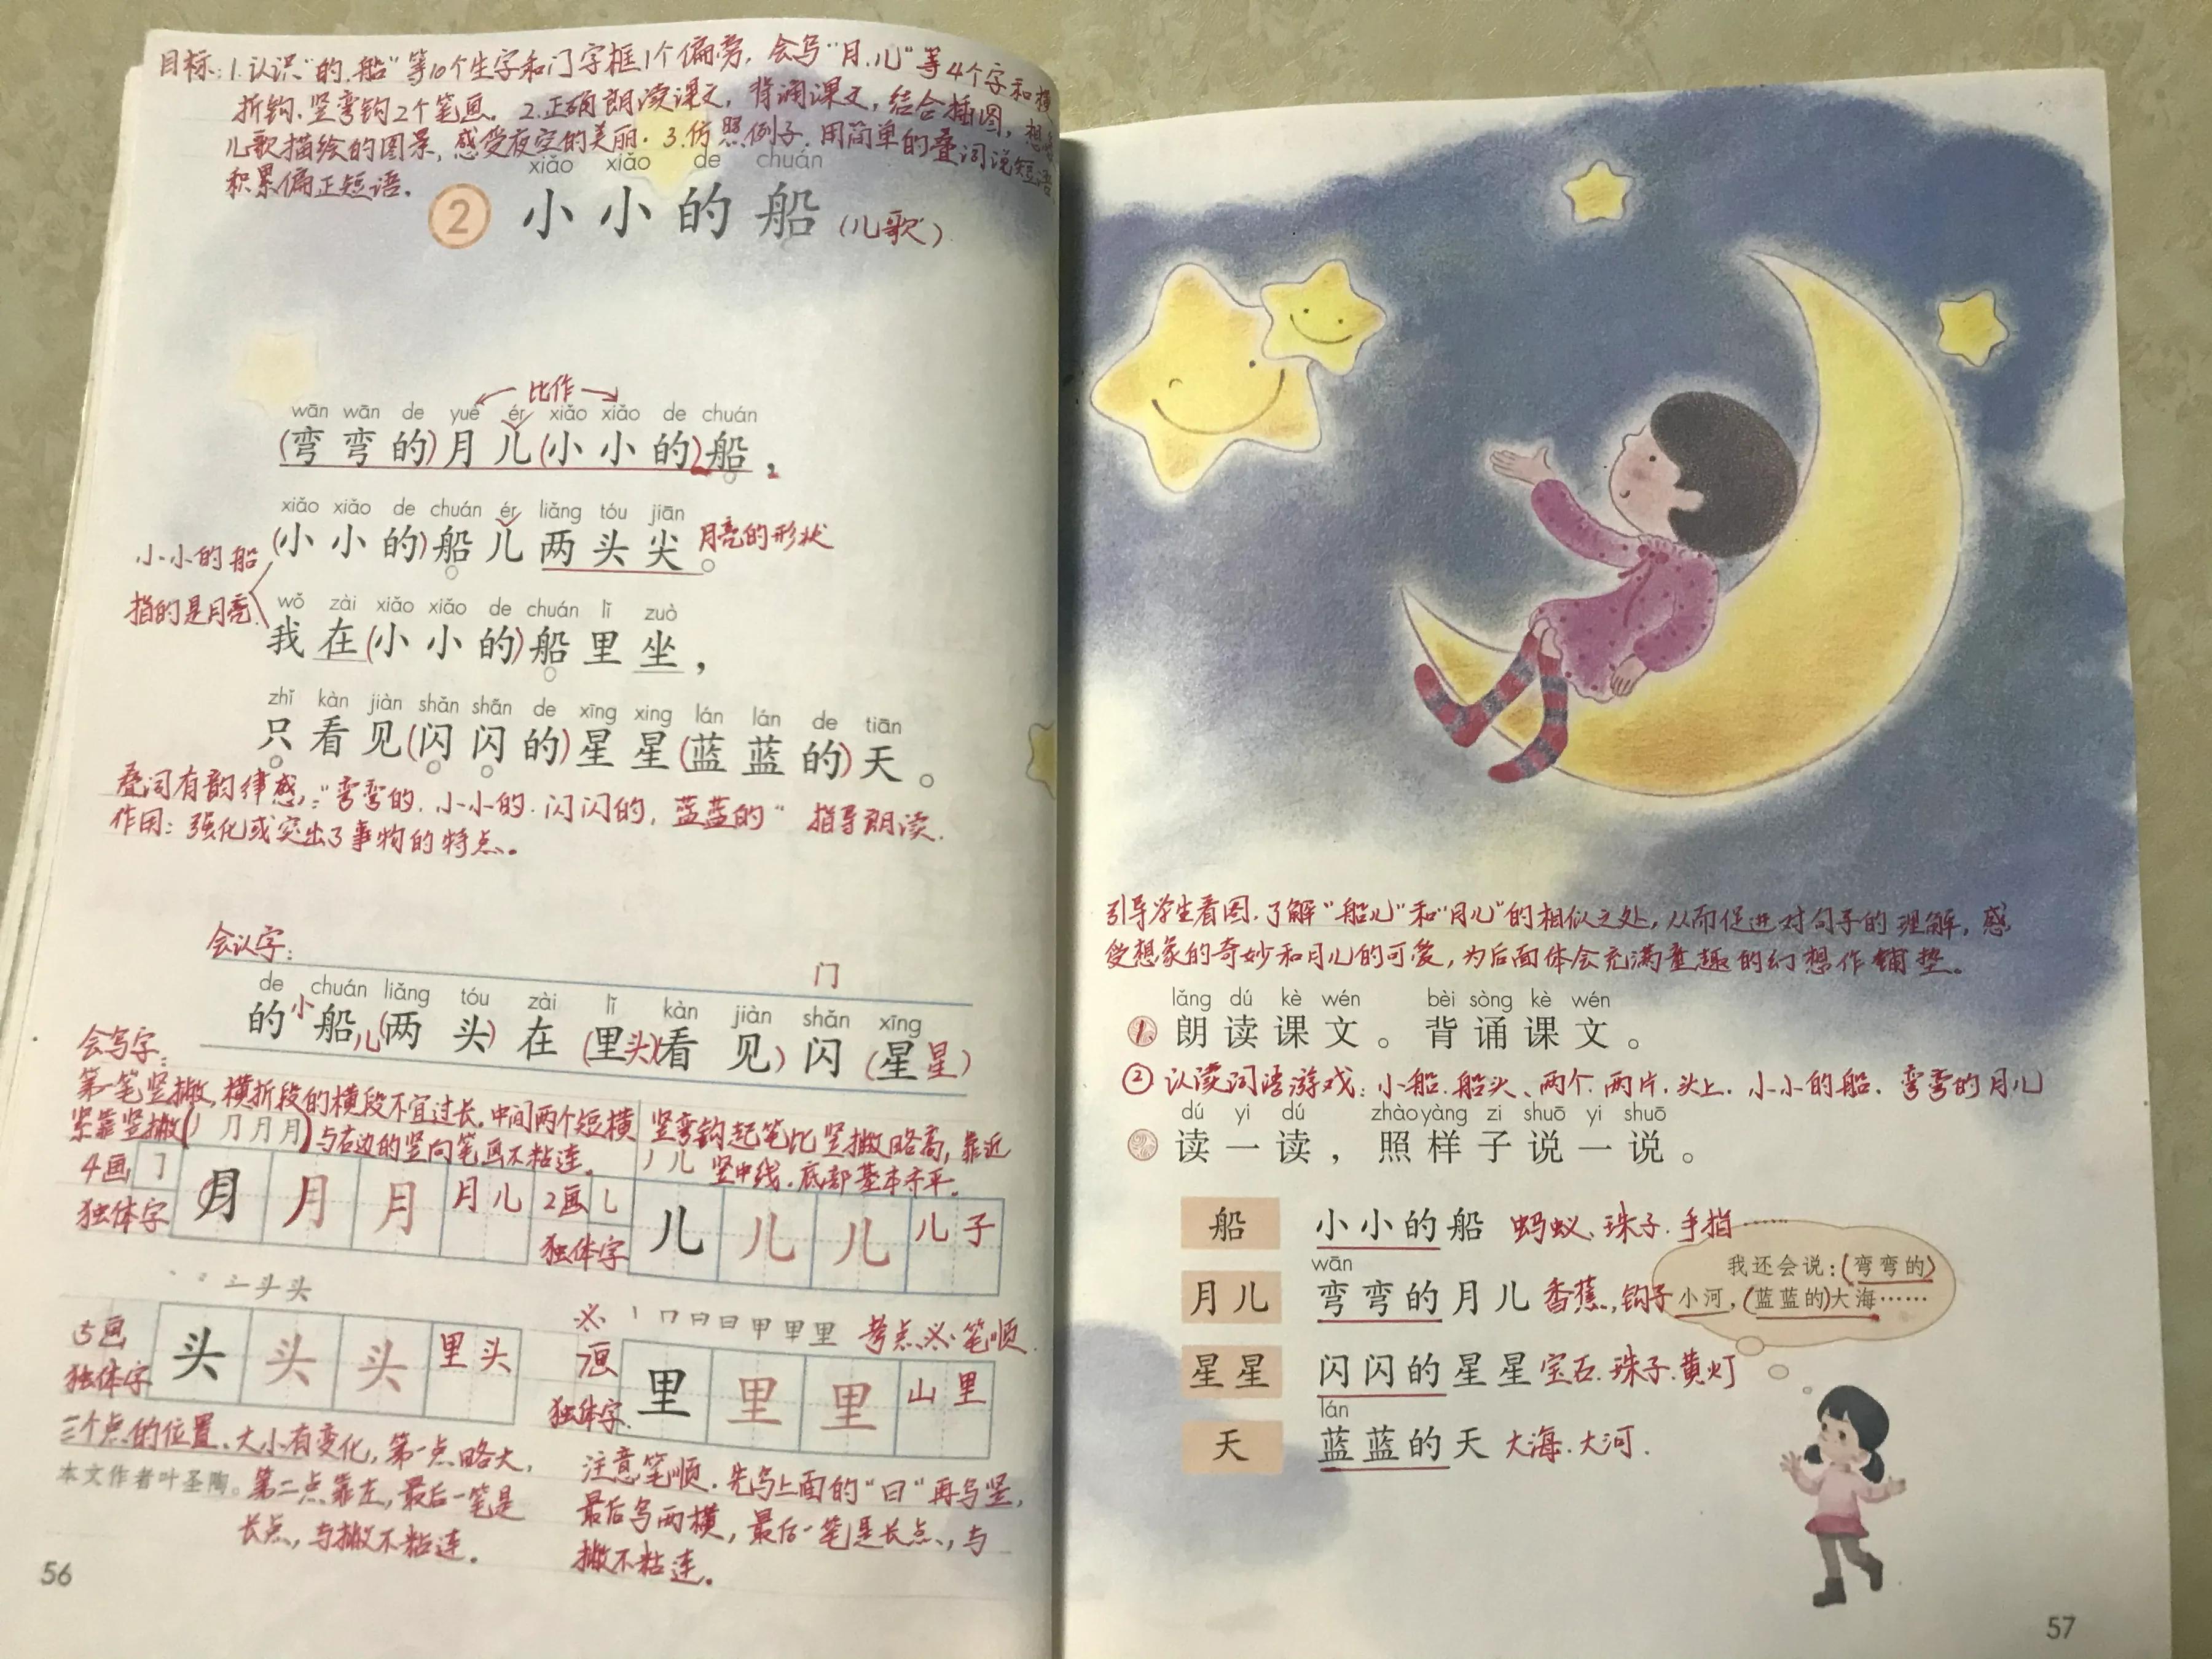 目标:1.认识"的、船"等10个生字和门字框1个偏旁,会写"月、儿"等4个字和横
折钩、竖弯钩2个笔画。2.正确朗读课文,背诵课文,结合插图,想象
儿歌描绘的图景,感受夜空的美丽.3.仿照例子.用简单的叠词说短语
积累偏正短语.
xiǎo xiǎo de chuán
2 小小的船 (儿歌)
比作
wān wān de yuè ér xiǎo xiǎo de chuán
(弯弯的)月儿(小小的)船,
xiǎo xiǎo de chuán ér liǎng tóu jiān
(小小的)船儿两头尖。 月亮的形状
小小的船
指的是月亮.
wǒ zài xiǎo xiǎo de chuán lǐ zuò
我在(小小的)船里坐,
zhǐ kàn jiàn shǎn shǎn de xīng xing lán lán de tiān
只看见(闪闪的)星星(蓝蓝的)天。
叠词有韵律感,:"弯弯的.小小的.闪闪的,蓝蓝的" 指导朗读.
作用:强化或突出了事物的特点.
会认字:
门
de chuán liǎng tóu zài lǐ kàn jiàn shǎn xīng
的 小船儿(两头)在(里头)(看见)闪(星星)
会写字:
第一笔竖撇,横折段的横段不宜过长.中间两个短横
紧靠竖撇(丿 ⺆ 月 月)与右边的竖向笔画不粘连.
4画 ㇆
独体字 月 月 月 月儿
竖弯钩起笔比竖撇略高,靠近
丿 儿 竖中线.底部基本齐平.
2画 乚
独体字 儿 儿 儿 儿子
丶 ⺀ 头 头
5画
独体字 头 头 头 里头
三个点的位置、大小有变化,第一点略大,
本文作者叶圣陶。 第二点靠左,最后一笔是
长点,与撇不粘连.
※ 丨 冂 日 日 甲 里 里 考点※笔顺.
7画
独体字. 里 里 里 山里
注意笔顺.先写上面的"曰"再写竖,
最后写两横,最后一笔是长点,与
撇不粘连.
56
引导学生看图.了解"船儿"和"月儿"的相似之处,从而促进对句子的理解,感
受想象的奇妙和月儿的可爱,为后面体会充满童趣的幻想作铺垫.
lǎng dú kè wén bèi sòng kè wén
1 朗读课文。背诵课文。
② 认读词语游戏:小船.船头、两个.两片.头上.小小的船.弯弯的月儿
dú yi dú zhào yàng zi shuō yi shuō
读一读,照样子说一说。
船 小小的船 蚂蚁、珠子.手指……
wān
月儿 弯弯的月儿 香蕉.,钩子
我还会说:(弯弯的)
小河,(蓝蓝的)大海……
星星 闪闪的星星 宝石.珠子.黄灯
lán
天 蓝蓝的天 大海.大河.
57